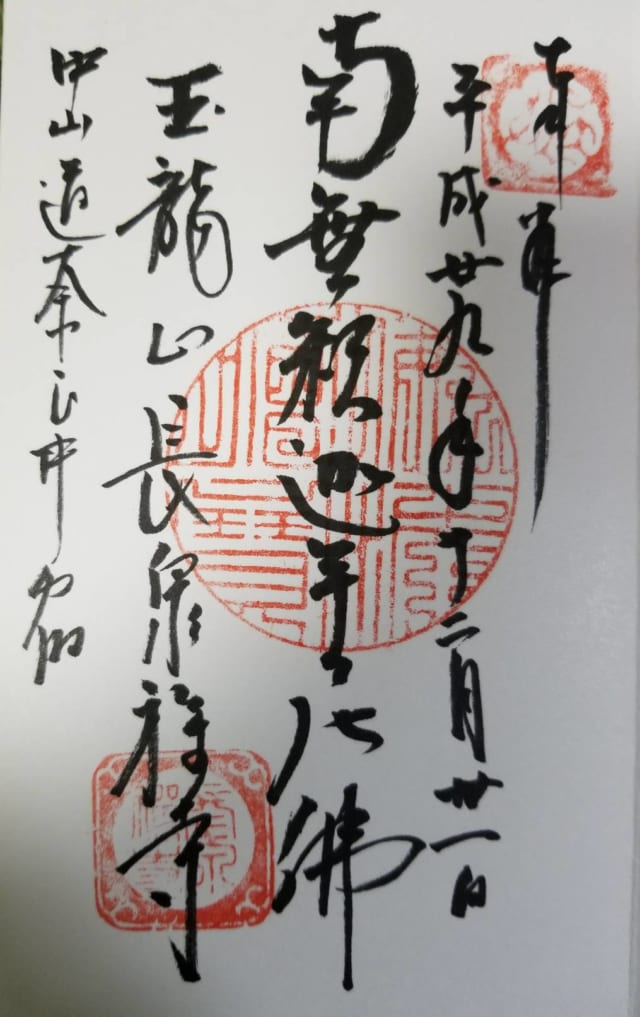 奉拝
平成廿九年十二月卅一日
南無釈迦牟尼佛
玉龍山長泉禅寺
中山道奈良井宿